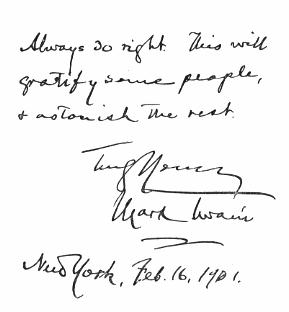 Always do right. This will
gratify some people,
& astonish the rest.
Truly Yours,
Mark Twain
New York, Feb. 16, 1901.